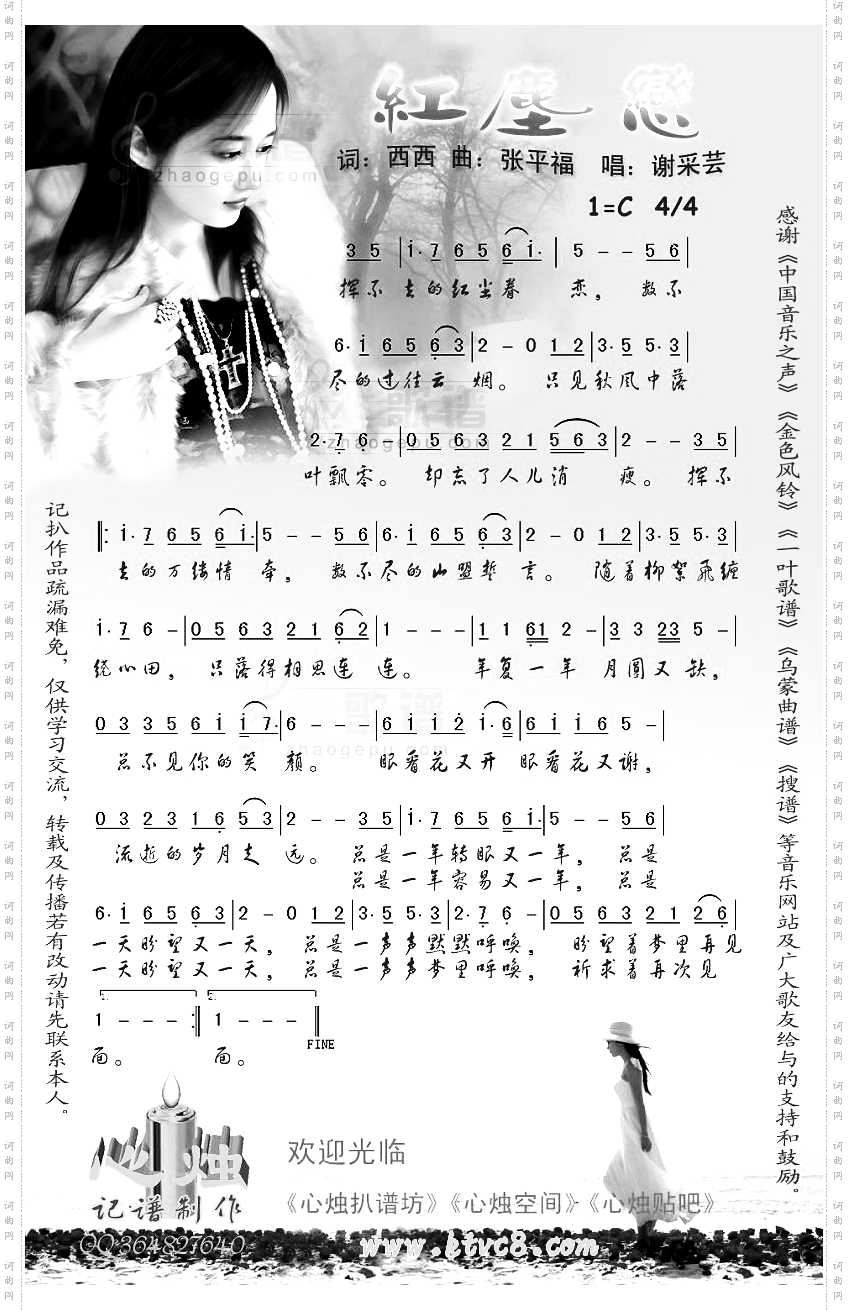 紅塵戀
词：西西 曲：张平福 唱：谢采芸
1=C 4/4
3 5 | i· 7 6 5 6 i· | 5 - - 5 6 |
挥不去的红尘眷恋，数不
6· i 6 5 6 3 | 2 - 0 1 2 | 3· 5 5· 3 |
尽的过往云烟。只见秋风中落
2· 7 6 - | 0 5 6 3 2 1 5 6 3 | 2 - - 3 5 |
叶飘零。却忘了人儿消瘦。挥不
‖: i· 7 6 5 6 i· | 5 - - 5 6 | 6· i 6 5 6 3 | 2 - 0 1 2 | 3· 5 5· 3 |
去的万缕情牵，数不尽的山盟誓言。随着柳絮飛缠
i· 7 6 - | 0 5 6 3 2 1 6 2 | 1 - - - | 1 1 61 2 - | 3 3 23 5 - |
绕心田，只落得相思连连。年复一年月圆又缺，
0 3 3 5 6 i i 7· | 6 - - - | 6 i i 2 i· 6 | 6 i i 6 5 - |
总不见你的笑颜。眼看花又开眼看花又谢，
0 3 2 3 1 6 5 3 | 2 - - 3 5 | i· 7 6 5 6 i· | 5 - - 5 6 |
流逝的岁月走远。总是一年转眼又一年，总是
总是一年容易又一年，总是
6· i 6 5 6 3 | 2 - 0 1 2 | 3· 5 5· 3 | 2· 7 6 - | 0 5 6 3 2 1 2 6 |
一天盼望又一天，总是一声声默默呼唤，盼望着梦里再见
一天盼望又一天，总是一声声梦里呼唤，祈求着再次见
1. 2.
1 - - - :‖ 1 - - - ‖
FINE
面。面。
记扒作品疏漏难免，仅供学习交流，转载及传播若有改动请先联系本人。
感谢《中国音乐之声》《金色风铃》《一叶歌谱》《乌蒙曲谱》《搜谱》等音乐网站及广大歌友给与的支持和鼓励。
心烛
记谱制作
QQ:364827640
欢迎光临
《心烛扒谱坊》《心烛空间》-《心烛贴吧》
www.ktvc8.com
zhaogepu.com
zhaogepu.com
歌谱
zhaogepu.com
词曲网